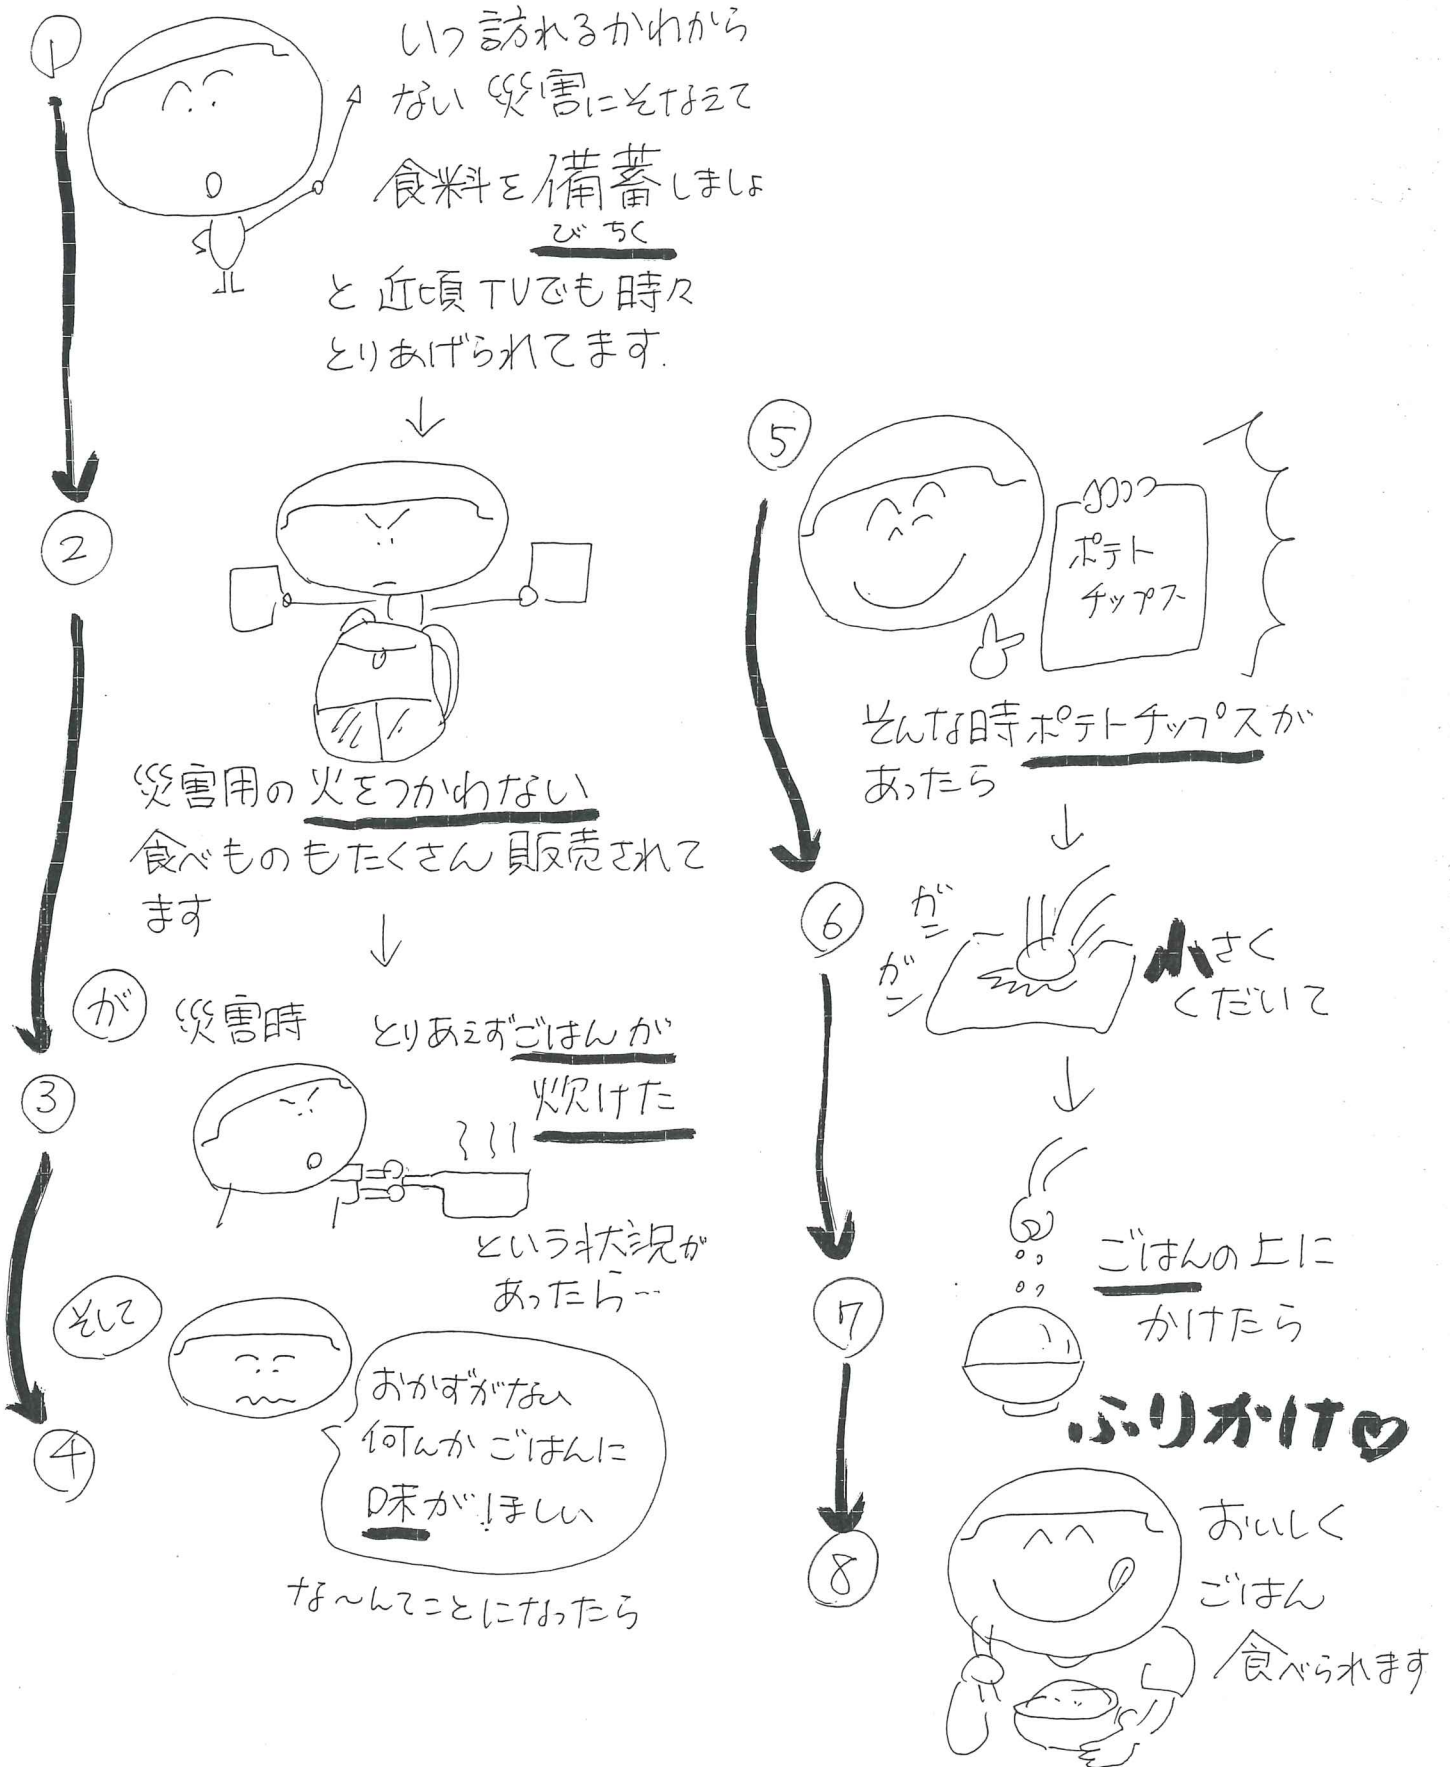 ①
いつ訪れるかわから
ない災害にそなえて
食料を備蓄しましょ
びちく
と近頃TVでも時々
とりあげられてます.
②
災害用の火をつかわない
食べものもたくさん販売されて
ます
が 災害時 とりあえずごはんが
炊けた
③
という状況が
あったら…
そして
④
おかずがない
何んかごはんに
味がほしい
な〜んてことになったら
⑤
ポテト
チップス
そんな時ポテトチップスが
あったら
⑥
ガン
ガン
小さく
くだいて
⑦
ごはんの上に
かけたら
ふりかけ♡
⑧
おいしく
ごはん
食べられます